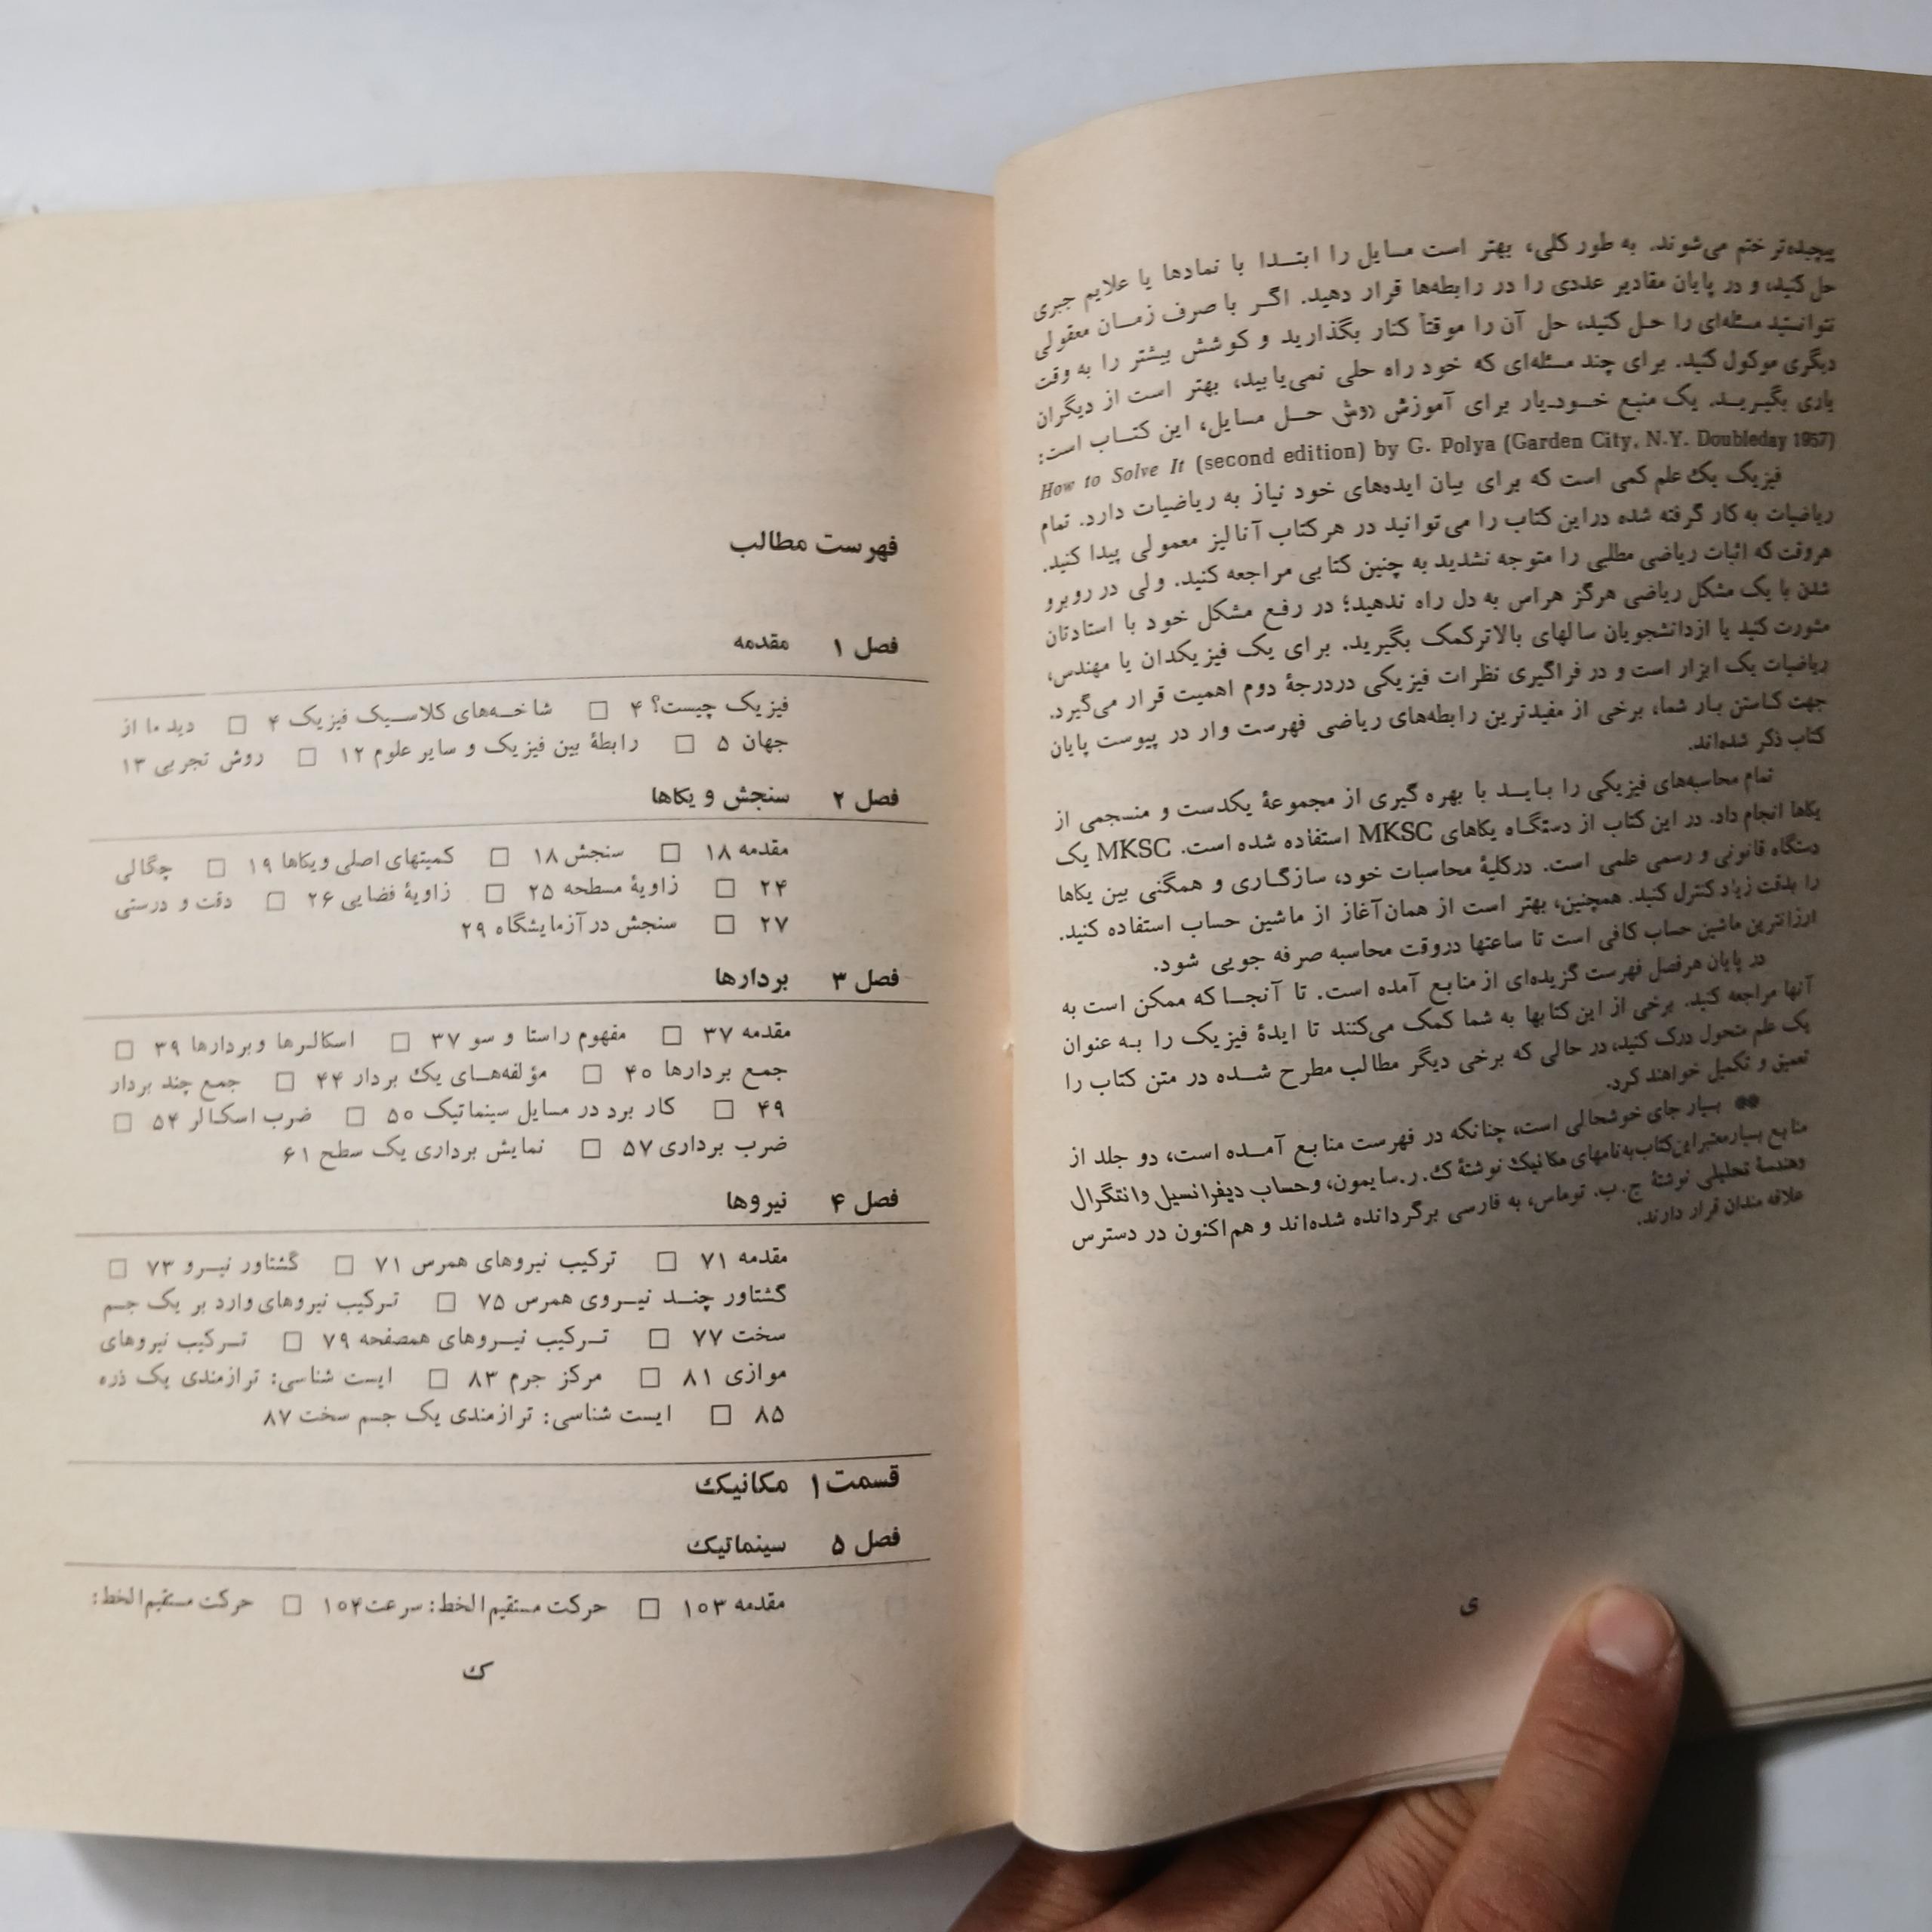 پیچیده‌تر ختم می‌شوند. به طور کلی، بهتر است مسایل را ابتدا با نمادها یا علایم جبری
حل کنید، و در پایان مقادیر عددی را در رابطه‌ها قرار دهید. اگر با صرف زمان معقولی
نتوانستید مسئله‌ای را حل کنید، حل آن را موقتاً کنار بگذارید و کوشش بیشتر را به وقت
دیگری موکول کنید. برای چند مسئله‌ای که خود راه حلی نمی‌یابید، بهتر است از دیگران
یاری بگیرید. یک منبع خودیار برای آموزش روش حل مسایل، این کتاب است:
How to Solve It (second edition) by G. Polya (Garden City, N.Y. Doubleday 1957)
فیزیک یک علم کمی است که برای بیان ایده‌های خود نیاز به ریاضیات دارد. تمام
ریاضیات به کار گرفته شده دراین کتاب را می‌توانید در هر کتاب آنالیز معمولی پیدا کنید.
هروقت که اثبات ریاضی مطلبی را متوجه نشدید به چنین کتابی مراجعه کنید. ولی در روبرو
شدن با یک مشکل ریاضی هرگز هراس به دل راه ندهید؛ در رفع مشکل خود با استادتان
مشورت کنید یا ازدانشجویان سالهای بالاترکمک بگیرید. برای یک فیزیکدان یا مهندس،
ریاضیات یک ابزار است و در فراگیری نظرات فیزیکی دردرجهٔ دوم اهمیت قرار می‌گیرد.
جهت کاستن بار شما، برخی از مفیدترین رابطه‌های ریاضی فهرست وار در پیوست پایان
کتاب ذکر شده‌اند.
تمام محاسبه‌های فیزیکی را باید با بهره گیری از مجموعهٔ یکدست و منسجمی از
یکاها انجام داد. در این کتاب از دستگاه یکاهای MKSC استفاده شده است. MKSC یک
دستگاه قانونی و رسمی علمی است. درکلیهٔ محاسبات خود، سازگاری و همگنی بین یکاها
را بدقت زیاد کنترل کنید. همچنین، بهتر است از همان آغاز از ماشین حساب استفاده کنید.
ارزانترین ماشین حساب کافی است تا ساعتها دروقت محاسبه صرفه جویی شود.
در پایان هرفصل فهرست گزیده‌ای از منابع آمده است. تا آنجا که ممکن است به
آنها مراجعه کنید. برخی از این کتابها به شما کمک می‌کنند تا ایدهٔ فیزیک را به عنوان
یک علم متحول درک کنید، در حالی که برخی دیگر مطالب مطرح شده در متن کتاب را
تعمیق و تکمیل خواهند کرد.
** بسیار جای خوشحالی است، چنانکه در فهرست منابع آمده است، دو جلد از
منابع بسیارمعتبر این کتاب به نامهای مکانیک نوشتهٔ ک. ر. سایمون، وحساب دیفرانسیل وانتگرال
وهندسهٔ تحلیلی نوشتهٔ ج. ب. توماس، به فارسی برگردانده شده‌اند و هم اکنون در دسترس
علاقه مندان قرار دارند.
ی
فهرست مطالب
فصل ۱ مقدمه
فیزیک چیست؟ ۴ □ شاخه‌های کلاسیک فیزیک ۴ □ دید ما از
جهان ۵ □ رابطهٔ بین فیزیک و سایر علوم ۱۲ □ روش تجربی ۱۳
فصل ۲ سنجش و یکاها
مقدمه ۱۸ □ سنجش ۱۸ □ کمیتهای اصلی ویکاها ۱۹ □ چگالی
۲۴ □ زاویهٔ مسطحه ۲۵ □ زاویهٔ فضایی ۲۶ □ دقت و درستی
۲۷ □ سنجش در آزمایشگاه ۲۹
فصل ۳ بردارها
مقدمه ۳۷ □ مفهوم راستا و سو ۳۷ □ اسکالرها وبردارها ۳۹ □
جمع بردارها ۴۰ □ مؤلفه‌های یک بردار ۴۴ □ جمع چند بردار
۴۹ □ کار برد در مسایل سینماتیک ۵۰ □ ضرب اسکالر ۵۴ □
ضرب برداری ۵۷ □ نمایش برداری یک سطح ۶۱
فصل ۴ نیروها
مقدمه ۷۱ □ ترکیب نیروهای همرس ۷۱ □ گشتاور نیرو ۷۳ □
گشتاور چند نیروی همرس ۷۵ □ ترکیب نیروهای وارد بر یک جسم
سخت ۷۷ □ ترکیب نیروهای همصفحه ۷۹ □ ترکیب نیروهای
موازی ۸۱ □ مرکز جرم ۸۳ □ ایست شناسی: ترازمندی یک ذره
۸۵ □ ایست شناسی: ترازمندی یک جسم سخت ۸۷
قسمت ۱ مکانیک
فصل ۵ سینماتیک
مقدمه ۱۰۳ □ حرکت مستقیم‌الخط: سرعت ۱۰۴ □ حرکت مستقیم‌الخط:
ک